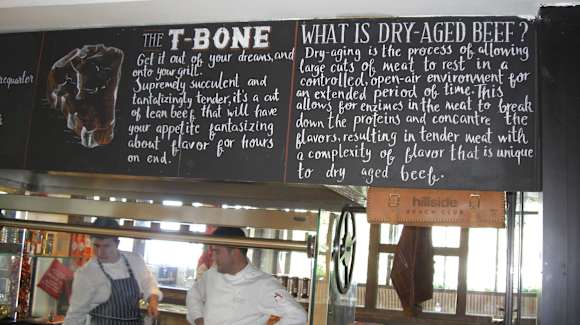 recquarter
THE T-BONE
Get it out of your dreams, and
onto your grill.
Supremely succulent and
tantalizingly tender, it's a cut
of lean beef that will have
your appetite fantasizing
about flavor for hours
on end.
WHAT IS DRY-AGED BEEF?
Dry-aging is the process of allowing
large cuts of meat to rest in a
controlled, open-air environment for
an extended period of time. This
allows for enzimes in the meat to break
down the proteins and concantre the
flavors, resulting in tender meat with
a complexity of flavor that is unique
to dry aged beef.
hillside
BEACH CLUB